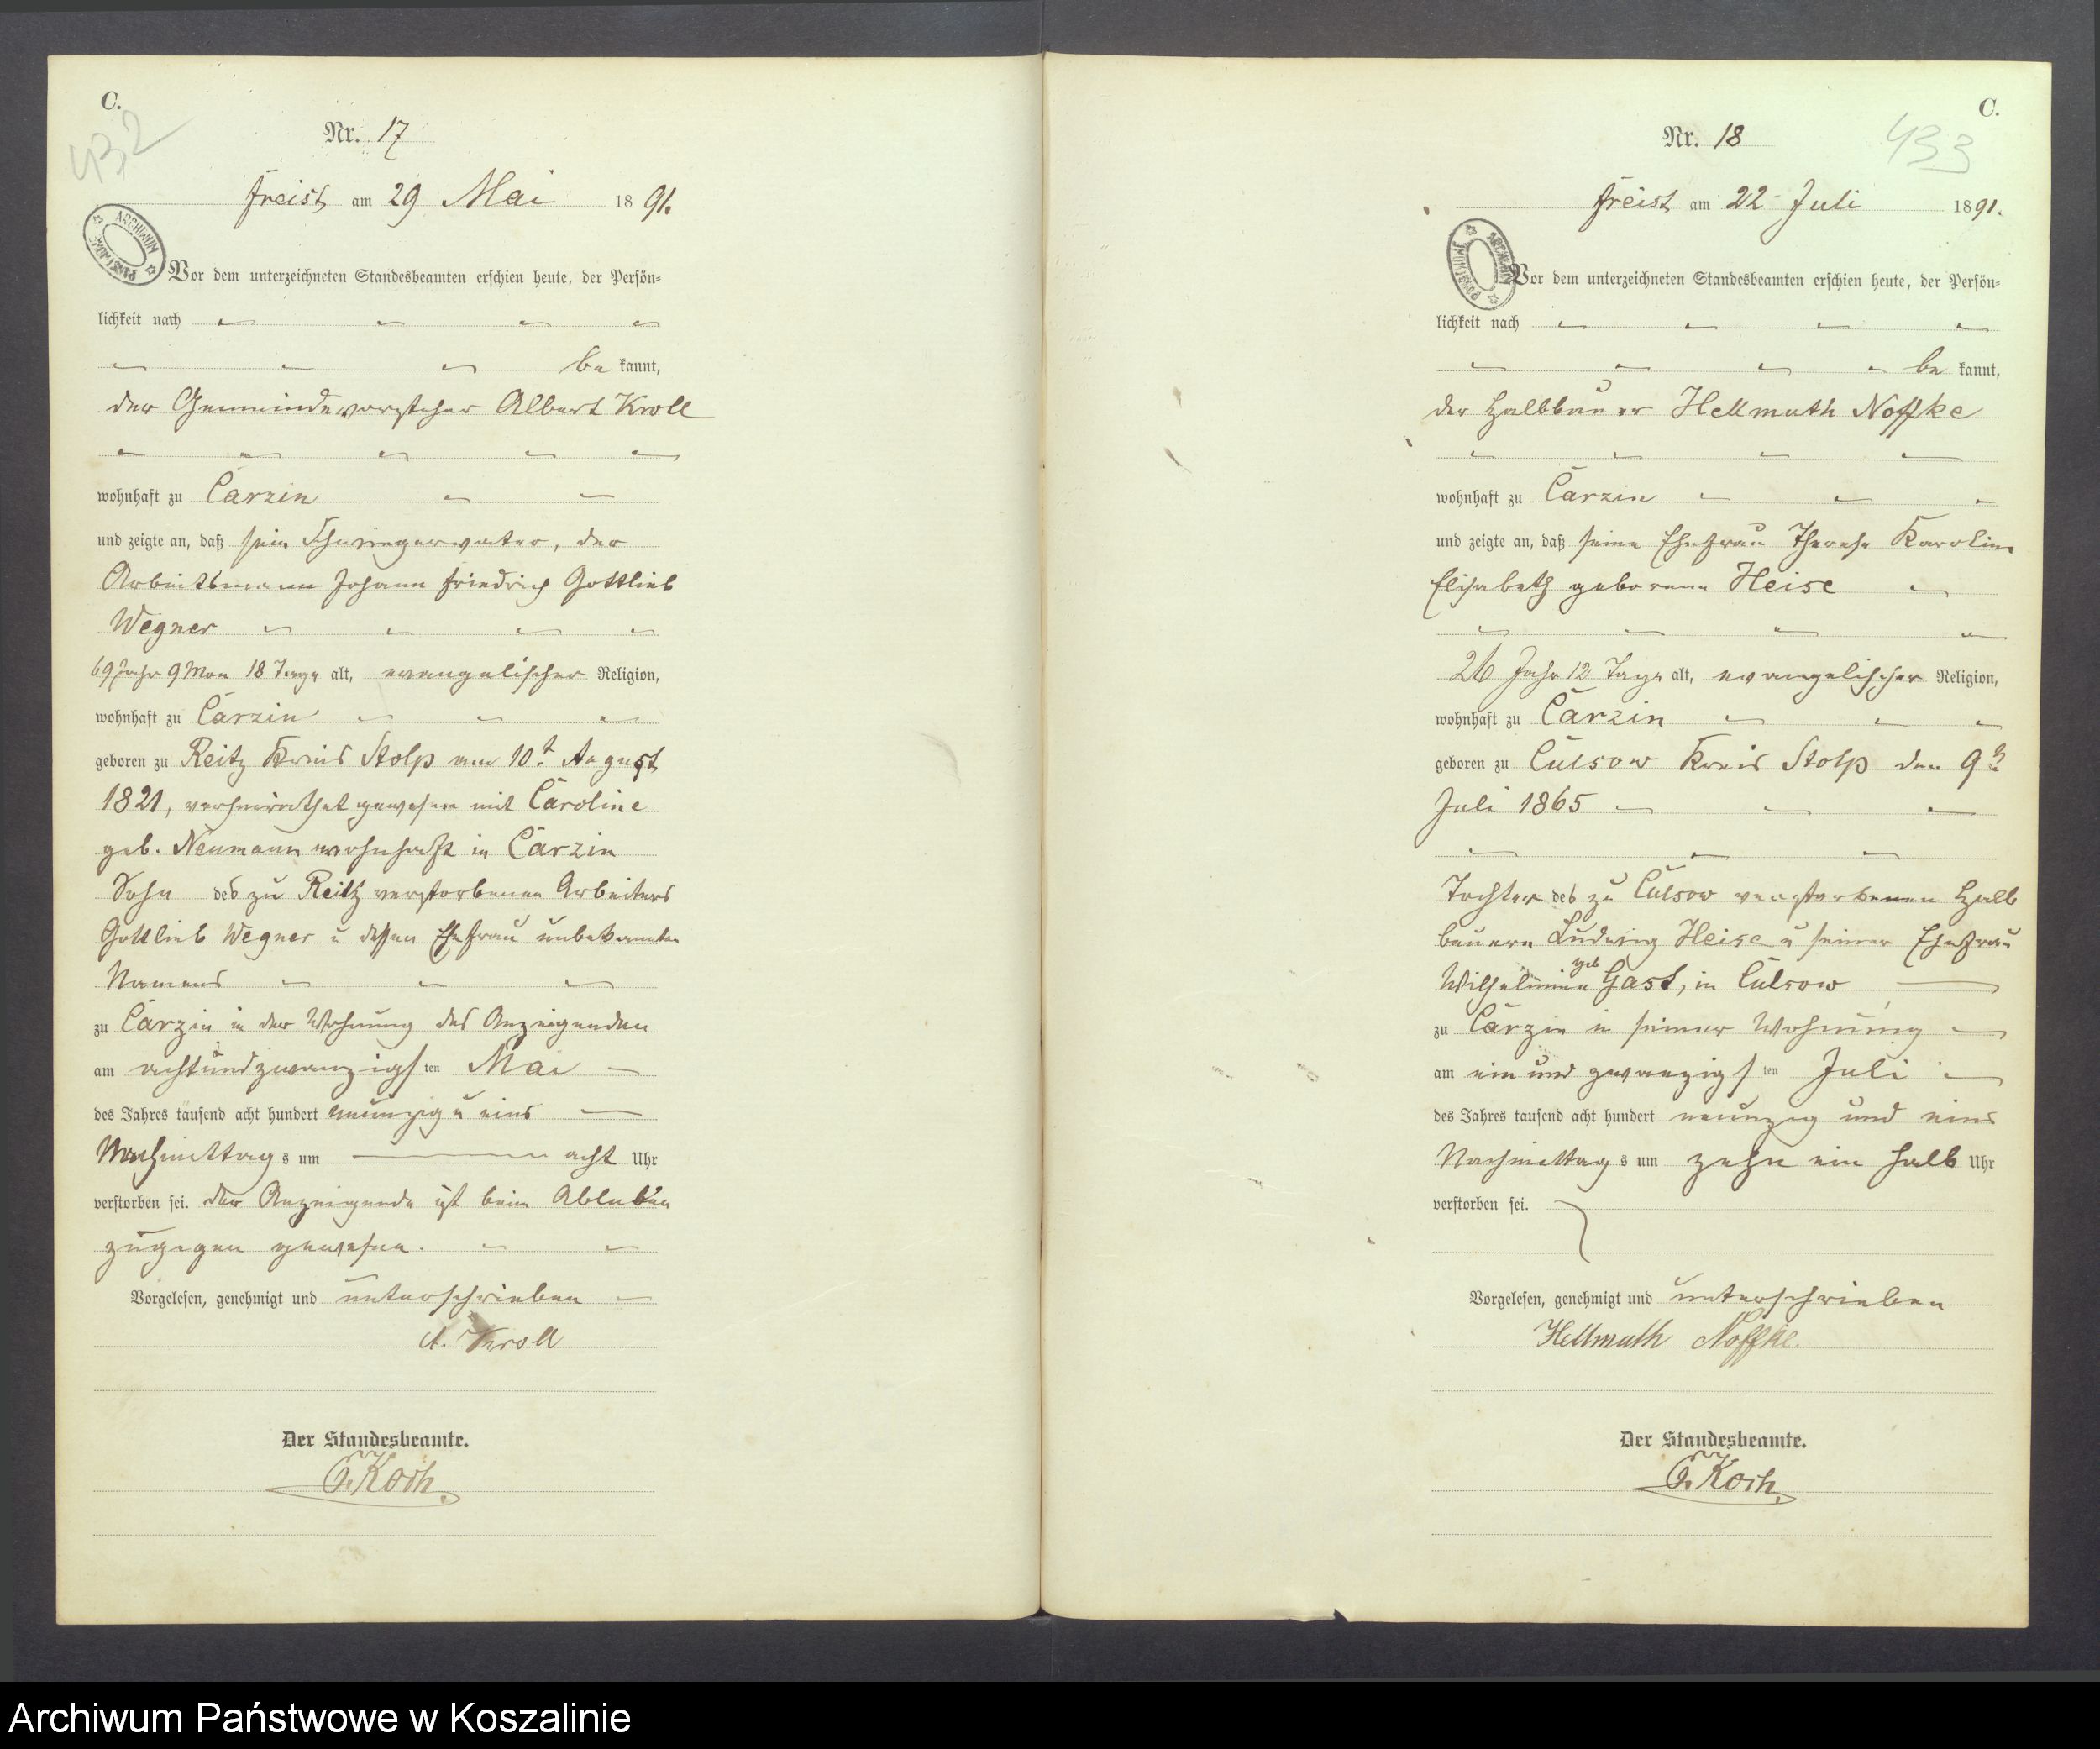 C.
432
Nr. 17
Freist am 29 Mai 1891.
ARCHIWUM PAŃSTWOWE
Vor dem unterzeichneten Standesbeamten erschien heute, der Persön-
lichkeit nach
be kannt,
der Gemeindevorsteher Albert Kroll
wohnhaft zu Carzin
und zeigte an, daß sein Schwiegervater, der
Arbeitsmann Johann Friedrich Gottlieb
Wegner
69 Jahr 9 Mon 18 Tage alt, evangelischer Religion,
wohnhaft zu Carzin
geboren zu Reitz Kreis Stolp am 10t. August
1821, verheirathet gewesen mit Caroline
geb. Neumann wohnhaft in Carzin
Sohn des zu Reitz verstorbenen Arbeiters
Gottlieb Wegner u dessen Ehefrau unbekannten
Namens
zu Carzin in der Wohnung des Anzeigenden
am achtundzwanzigsten Mai
des Jahres tausend acht hundert neunzig u eins
Nachmittags um acht Uhr
verstorben sei. der Anzeigende ist beim Ableben
zugegen gewesen.
Vorgelesen, genehmigt und unterschrieben
A. Kroll
Der Standesbeamte.
G. Koch.
C.
433
Nr. 18
Freist am 22 Juli 1891.
ARCHIWUM PAŃSTWOWE
Vor dem unterzeichneten Standesbeamten erschien heute, der Persön-
lichkeit nach
be kannt,
der Halbbauer Hellmuth Noffke
wohnhaft zu Carzin
und zeigte an, daß seine Ehefrau Therese Karoline
Elisabeth geborene Heise
26 Jahr 12 Tage alt, evangelischer Religion,
wohnhaft zu Carzin
geboren zu Culsow Kreis Stolp den 9n
Juli 1865
Tochter des zu Culsow verstorbenen Halb
bauern Ludwig Heise u seiner Ehefrau
Wilhelmine geb Gast, in Culsow
zu Carzin in seiner Wohnung
am ein und zwanzigsten Juli
des Jahres tausend acht hundert neunzig und eins
Nachmittags um zehn ein halb Uhr
verstorben sei.
Vorgelesen, genehmigt und unterschrieben
Hellmuth Noffke.
Der Standesbeamte.
G. Koch.
Archiwum Państwowe w Koszalinie